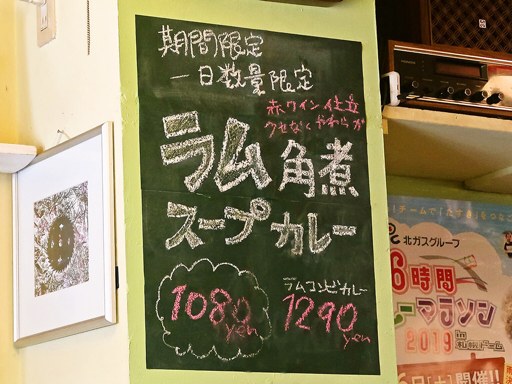 期間限定
一日数量限定
赤ワイン仕立
クセなくやわらか
ラム角煮
スープカレー
1080
yen
ラムコンビカレー
1290
yen
チームで「たすき」をつなご
北ガスグループ
6時間
マラソン
2019
開催!!